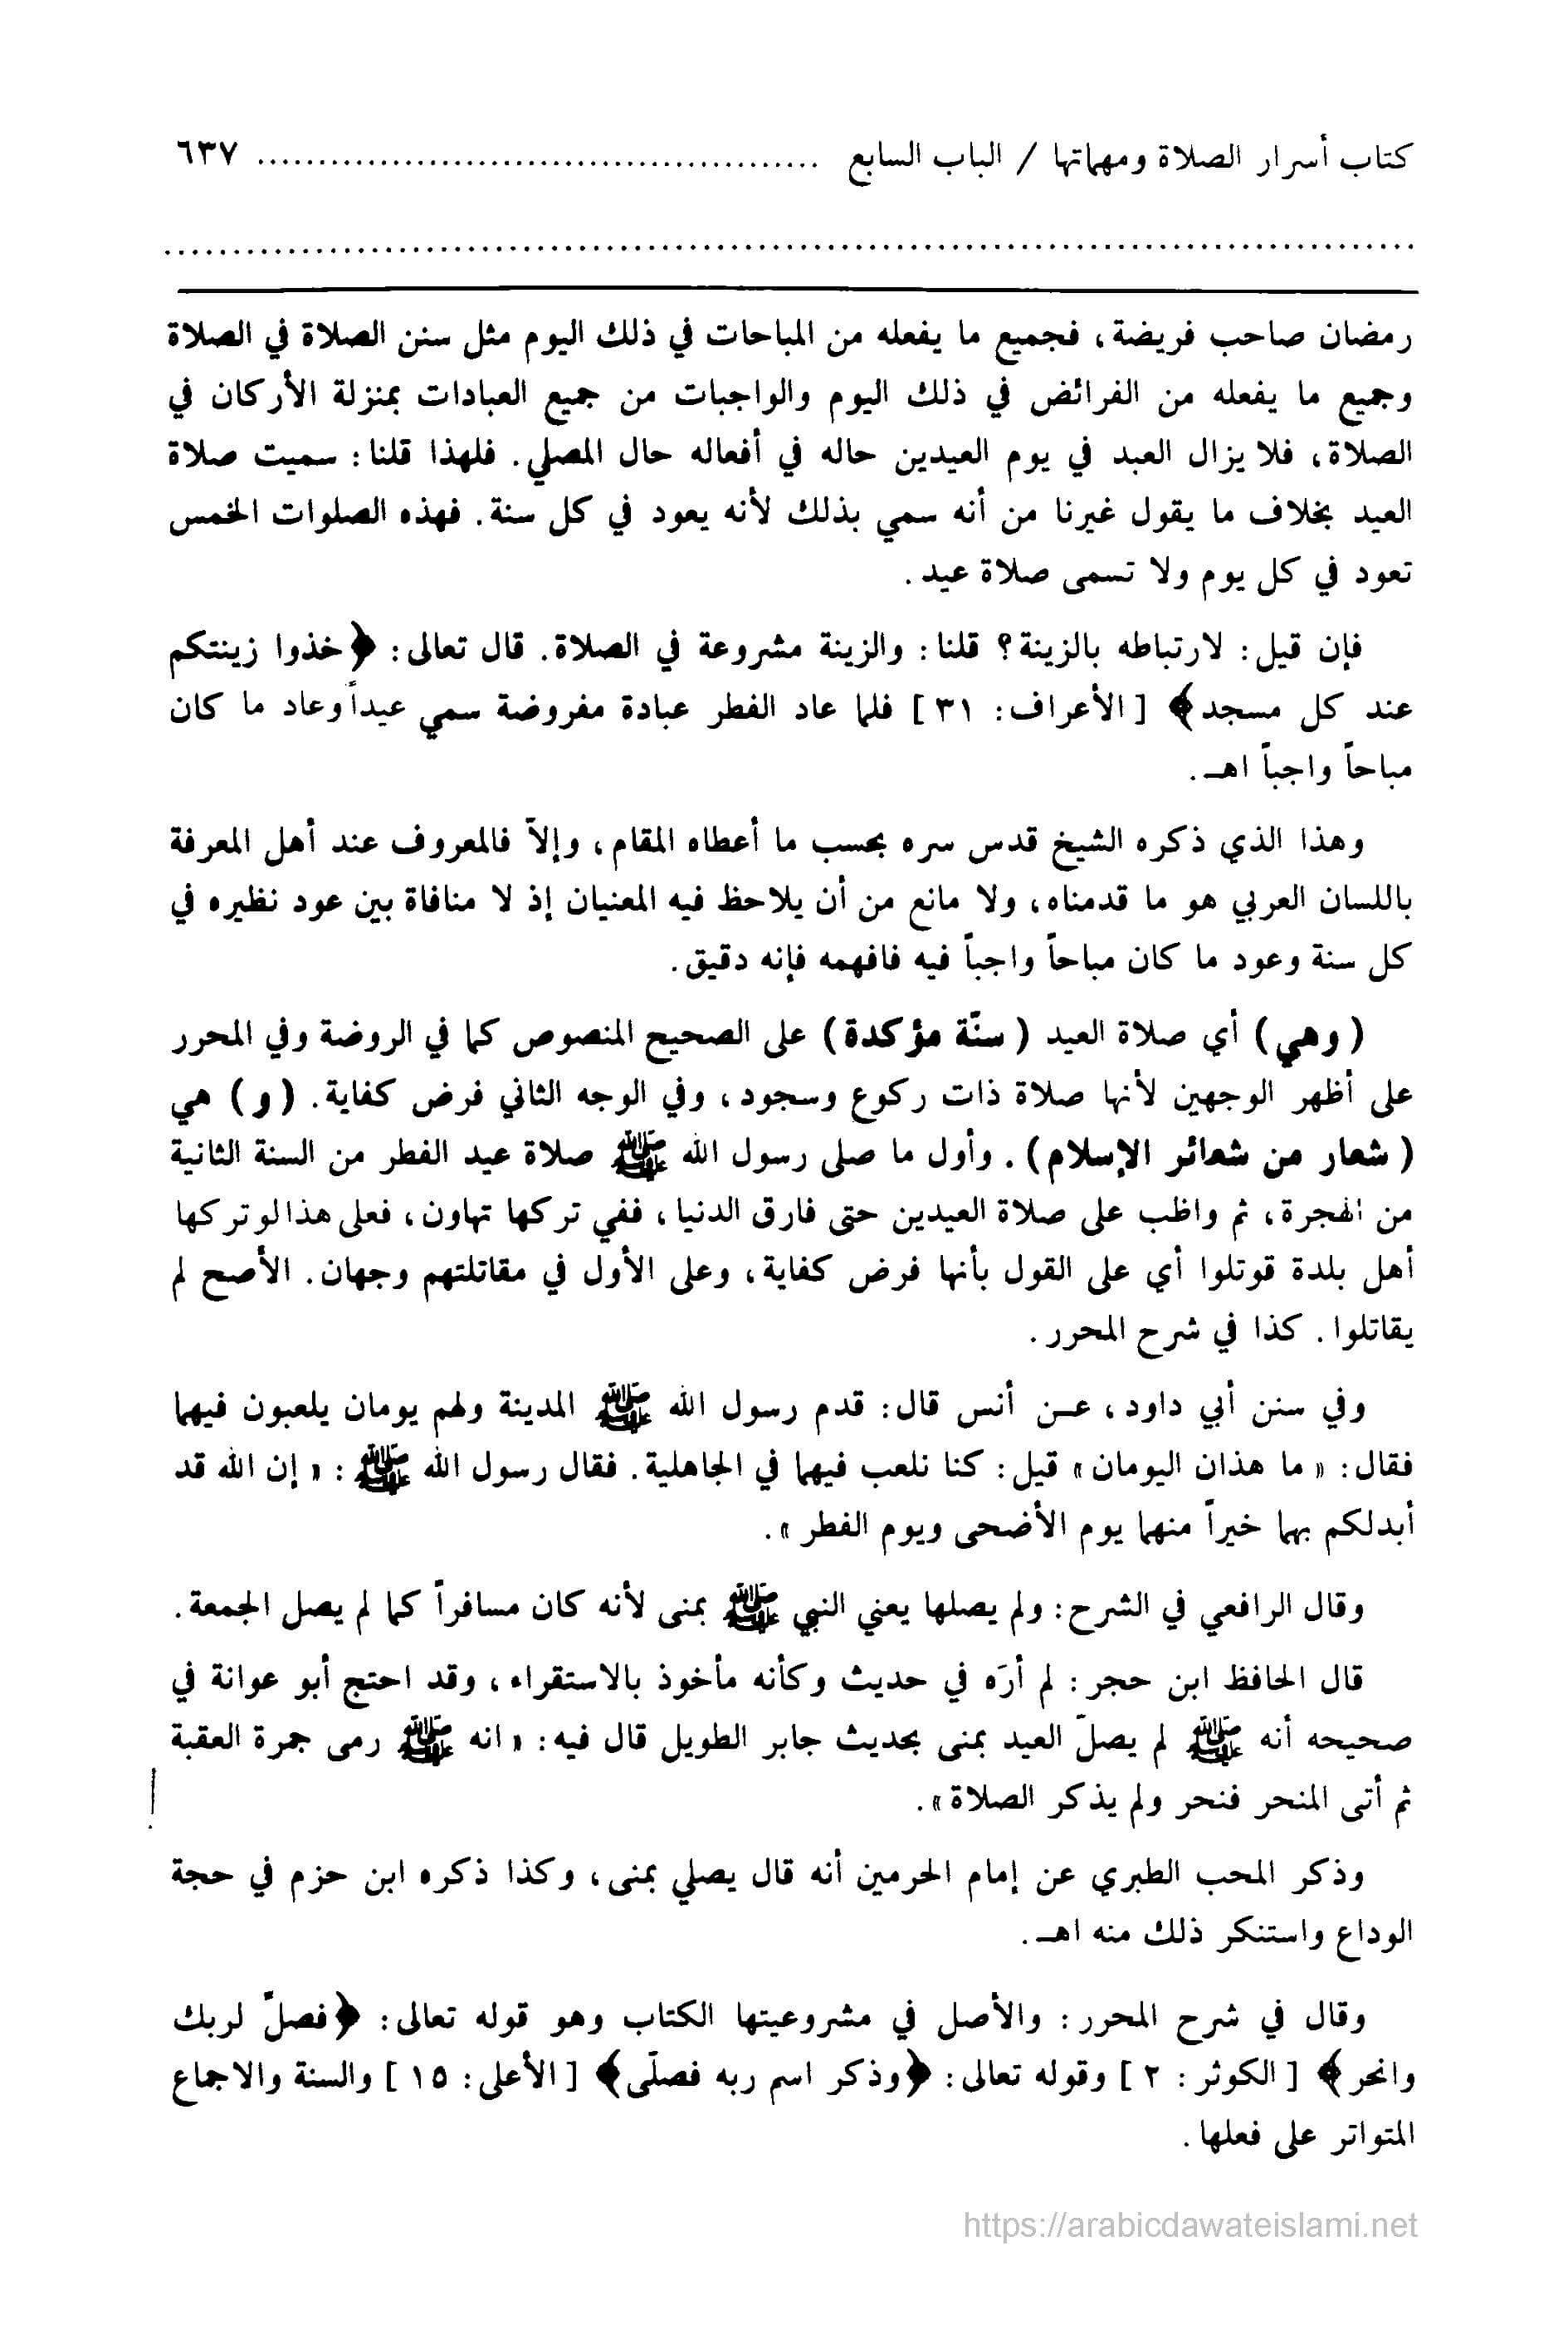 كتاب أسرار الصلاة ومهماتها / الباب السابع ............................................... ٦٣٧
...........................................................................................
رمضان صاحب فريضة، فجميع ما يفعله من المباحات في ذلك اليوم مثل سنن الصلاة في الصلاة
وجميع ما يفعله من الفرائض في ذلك اليوم والواجبات من جميع العبادات بمنزلة الأركان في
الصلاة، فلا يزال العبد في يوم العيدين حاله في أفعاله حال المصلي. فلهذا قلنا: سميت صلاة
العيد بخلاف ما يقول غيرنا من أنه سمي بذلك لأنه يعود في كل سنة. فهذه الصلوات الخمس
تعود في كل يوم ولا تسمى صلاة عيد.
فإن قيل: لارتباطه بالزينة؟ قلنا: والزينة مشروعة في الصلاة. قال تعالى: ﴿خذوا زينتكم
عند كل مسجد﴾ [الأعراف: ٣١] فلما عاد الفطر عبادة مفروضة سمي عيداً وعاد ما كان
مباحاً واجباً اهـ.
وهذا الذي ذكره الشيخ قدس سره بحسب ما أعطاه المقام، وإلاّ فالمعروف عند أهل المعرفة
باللسان العربي هو ما قدمناه، ولا مانع من أن يلاحظ فيه المعنيان إذ لا منافاة بين عود نظيره في
كل سنة وعود ما كان مباحاً واجباً فيه فافهمه فإنه دقيق.
(وهي) أي صلاة العيد (سنّة مؤكدة) على الصحيح المنصوص كما في الروضة وفي المحرر
على أظهر الوجهين لأنها صلاة ذات ركوع وسجود، وفي الوجه الثاني فرض كفاية. (و) هي
(شعار من شعائر الإسلام). وأول ما صلى رسول الله ﷺ صلاة عيد الفطر من السنة الثانية
من الهجرة، ثم واظب على صلاة العيدين حتى فارق الدنيا، ففي تركها تهاون، فعلى هذا لو تركها
أهل بلدة قوتلوا أي على القول بأنها فرض كفاية، وعلى الأول في مقاتلتهم وجهان. الأصح لم
يقاتلوا. كذا في شرح المحرر.
وفي سنن أبي داود، عـن أنس قال: قدم رسول الله ﷺ المدينة ولهم يومان يلعبون فيهما
فقال: «ما هذان اليومان» قيل: كنا نلعب فيهما في الجاهلية. فقال رسول الله ﷺ: «إن الله قد
أبدلكم بهما خيراً منهما يوم الأضحى ويوم الفطر».
وقال الرافعي في الشرح: ولم يصلها يعني النبي ﷺ بمنى لأنه كان مسافراً كما لم يصل الجمعة.
قال الحافظ ابن حجر: لم أرَه في حديث وكأنه مأخوذ بالاستقراء، وقد احتج أبو عوانة في
صحيحه أنه ﷺ لم يصلّ العيد بمنى بحديث جابر الطويل قال فيه: «انه ﷺ رمى جمرة العقبة
ثم أتى المنحر فنحر ولم يذكر الصلاة».
وذكر المحب الطبري عن إمام الحرمين أنه قال يصلي بمنى، وكذا ذكره ابن حزم في حجة
الوداع واستنكر ذلك منه اهـ.
وقال في شرح المحرر: والأصل في مشروعيتها الكتاب وهو قوله تعالى: ﴿فصلّ لربك
وانحر﴾ [الكوثر: ٢] وقوله تعالى: ﴿وذكر اسم ربه فصلّى﴾ [الأعلى: ١٥] والسنة والاجماع
المتواتر على فعلها.
https://arabicdawateislami.net